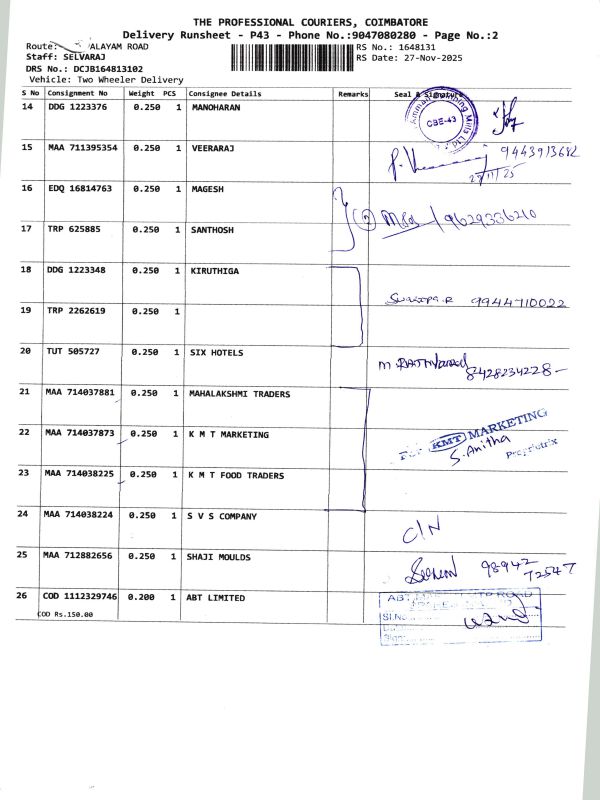 THE PROFESSIONAL COURIERS, COIMBATORE
Delivery Runsheet - P43 - Phone No.:9047080280 - Page No.:2
Route: ALAYAM ROAD
RS No.: 1648131
Staff: SELVARAJ
RS Date: 27-Nov-2025
DRS No.: DCJB164813102
Vehicle: Two Wheeler Delivery
S No Consignment No Weight PCS Consignee Details Remarks Seal & Signature
14 DDG 1223376 0.250 1 MANOHARAN
CBE-43
15 MAA 711395354 0.250 1 VEERARAJ
27/11/25
16 EDQ 16814763 0.250 1 MAGESH
9629336210
17 TRP 625885 0.250 1 SANTHOSH
18 DDG 1223348 0.250 1 KIRUTHIGA
9944710022
19 TRP 2262619 0.250 1
20 TUT 505727 0.250 1 SIX HOTELS
8428234228-
21 MAA 714037881 0.250 1 MAHALAKSHMI TRADERS
22 MAA 714037873 0.250 1 K M T MARKETING
For KMT MARKETING
S. Anitha
Proprietrix
23 MAA 714038225 0.250 1 K M T FOOD TRADERS
24 MAA 714038224 0.250 1 S V S COMPANY
C/N
25 MAA 712882656 0.250 1 SHAJI MOULDS
98942
72547
26 COD 1112329746 0.200 1 ABT LIMITED
COD Rs.150.00
ABT
Sl.No
Sign: